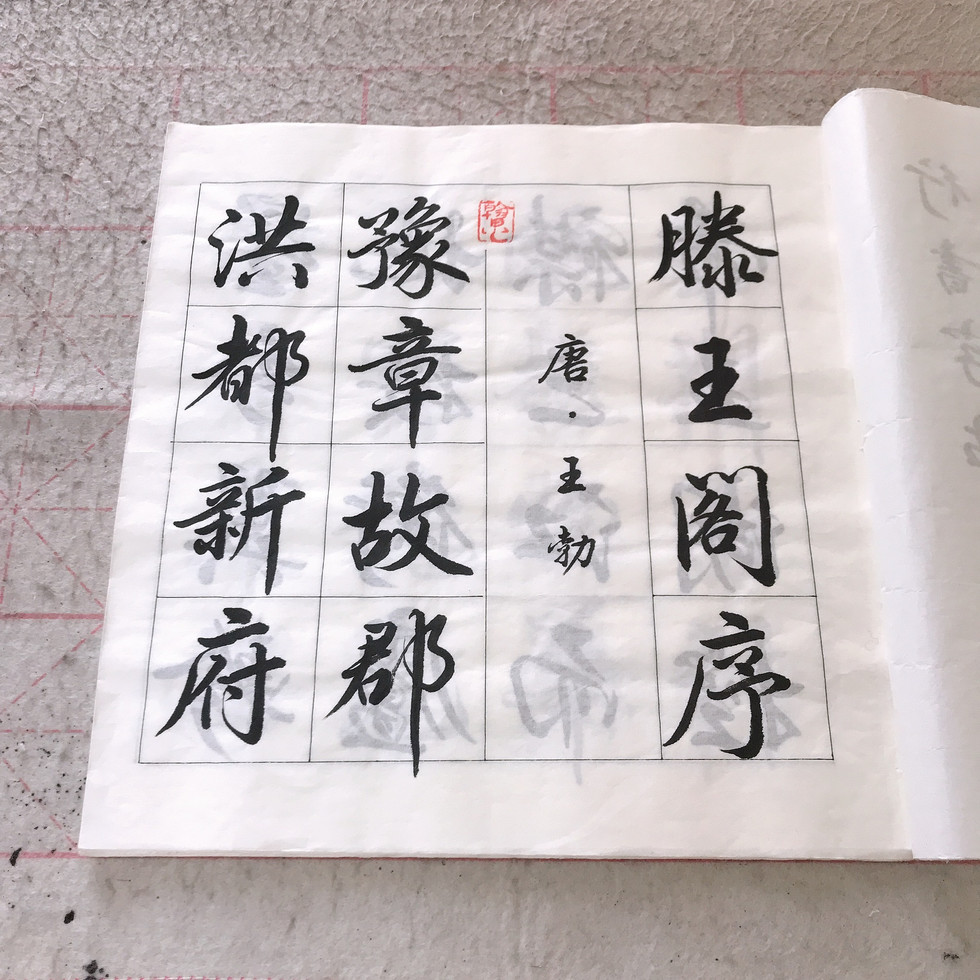 滕王阁序
唐·王勃
豫章故郡
洪都新府